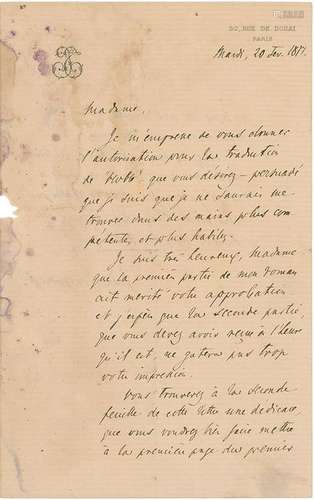 50, RUE DE DOUAI
PARIS
Mardi, 20 Fev. 1877.
Madame,
Je m'empresse de vous donner
l'autorisation pour la traduction
de que vous desirez – persuadé
que je suis que je ne saurais me
trouver dans des mains plus com
pétentes et plus habiles.
Je suis très heureux, Madame
que la première partie de mon roman
ait mérité votre approbation
et j'espère que la seconde partie,
que vous devez avoir reçue à l'heure
qu'il est, ne gâtera pas trop
votre impression.
Vous trouverez à la seconde
feuille de cette lettre une dedicace,
que vous voudrez bien faire mettre
à la première page du premier